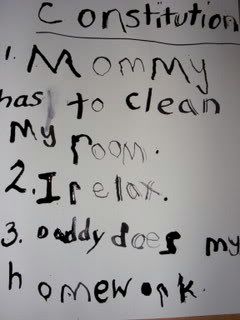 Constitution
1. Mommy
has to clean
My room.
2. I relax.
3. Daddy does my
homework.